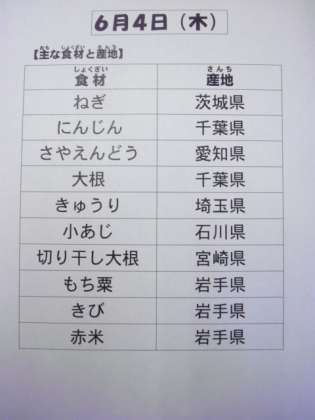 6月4日（木）
【主な食材と産地】
食材 産地
ねぎ 茨城県
にんじん 千葉県
さやえんどう 愛知県
大根 千葉県
きゅうり 埼玉県
小あじ 石川県
切り干し大根 宮崎県
もち粟 岩手県
きび 岩手県
赤米 岩手県